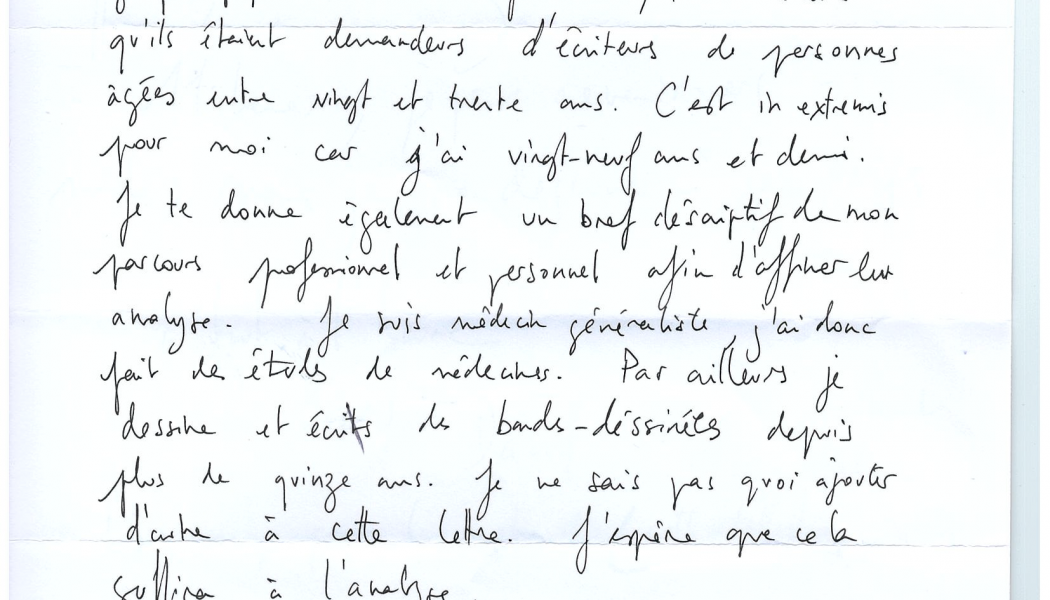 qu'ils étaient demandeurs d'écriteurs de personnes
âgées entre vingt et trente ans. C'est in extremis
pour moi car j'ai vingt-neuf ans et demi.
Je te donne également un bref déscriptif de mon
parcours professionnel et personnel afin d'affiner leur
analyse. Je suis médecin généraliste, j'ai donc
fait des études de médecines. Par ailleurs je
dessine et écrits des bandes-déssinées depuis
plus de quinze ans. Je ne sais pas quoi ajouter
d'autre à cette lettre. J'espère que cela
suffira à l'analyse